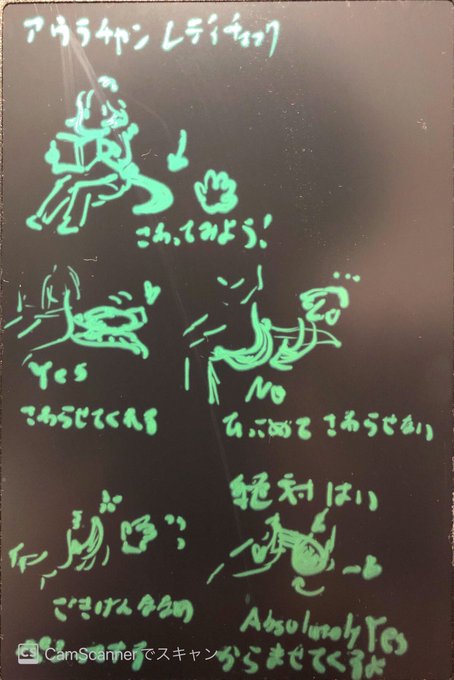 アウラチャン レディチェック
さわってみよう!
Yes
さわらせてくれる
No
ひっこめて さわらせない
絶対 はい
ごきげんななめ
Absolutely Yes
からませてくるよ
CS CamScanner でスキャン